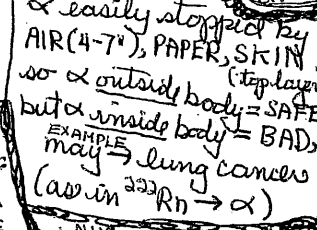 α easily stopped by
AIR (4-7"), PAPER, SKIN
(top layer
so α outside body = SAFE
but α inside body = BAD,
EXAMPLE
may → lung cancer
(as in ²²²Rn → α)